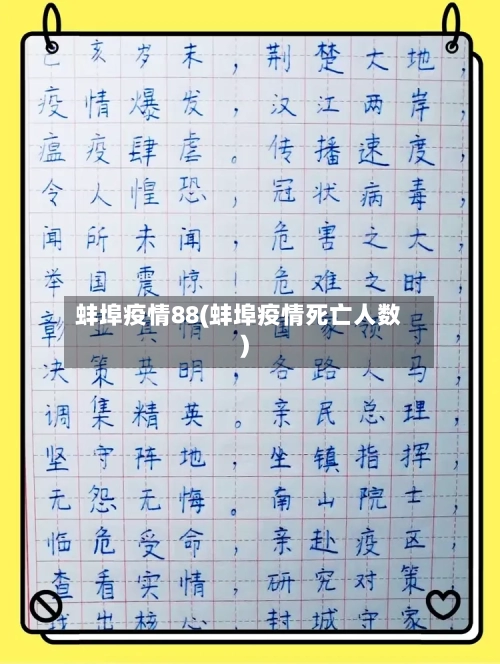 己亥岁末，荆楚大地，
疫情爆发，汉江两岸，
瘟疫肆虐。传播速度，
令人惶恐，冠状病毒，
闻所未闻，危害之大，
举国震惊！危难之时，
蚌埠疫情88(蚌埠疫情死亡人数
)
彰显真情，国家领导，
决策英明，各路人马，
调集精英。亲民总理，
坚守阵地，坐镇指挥，
无怨无悔。南山院士，
临危受命，亲赴疫区，
查看实情，研究对策，
找出核心，封城守家，